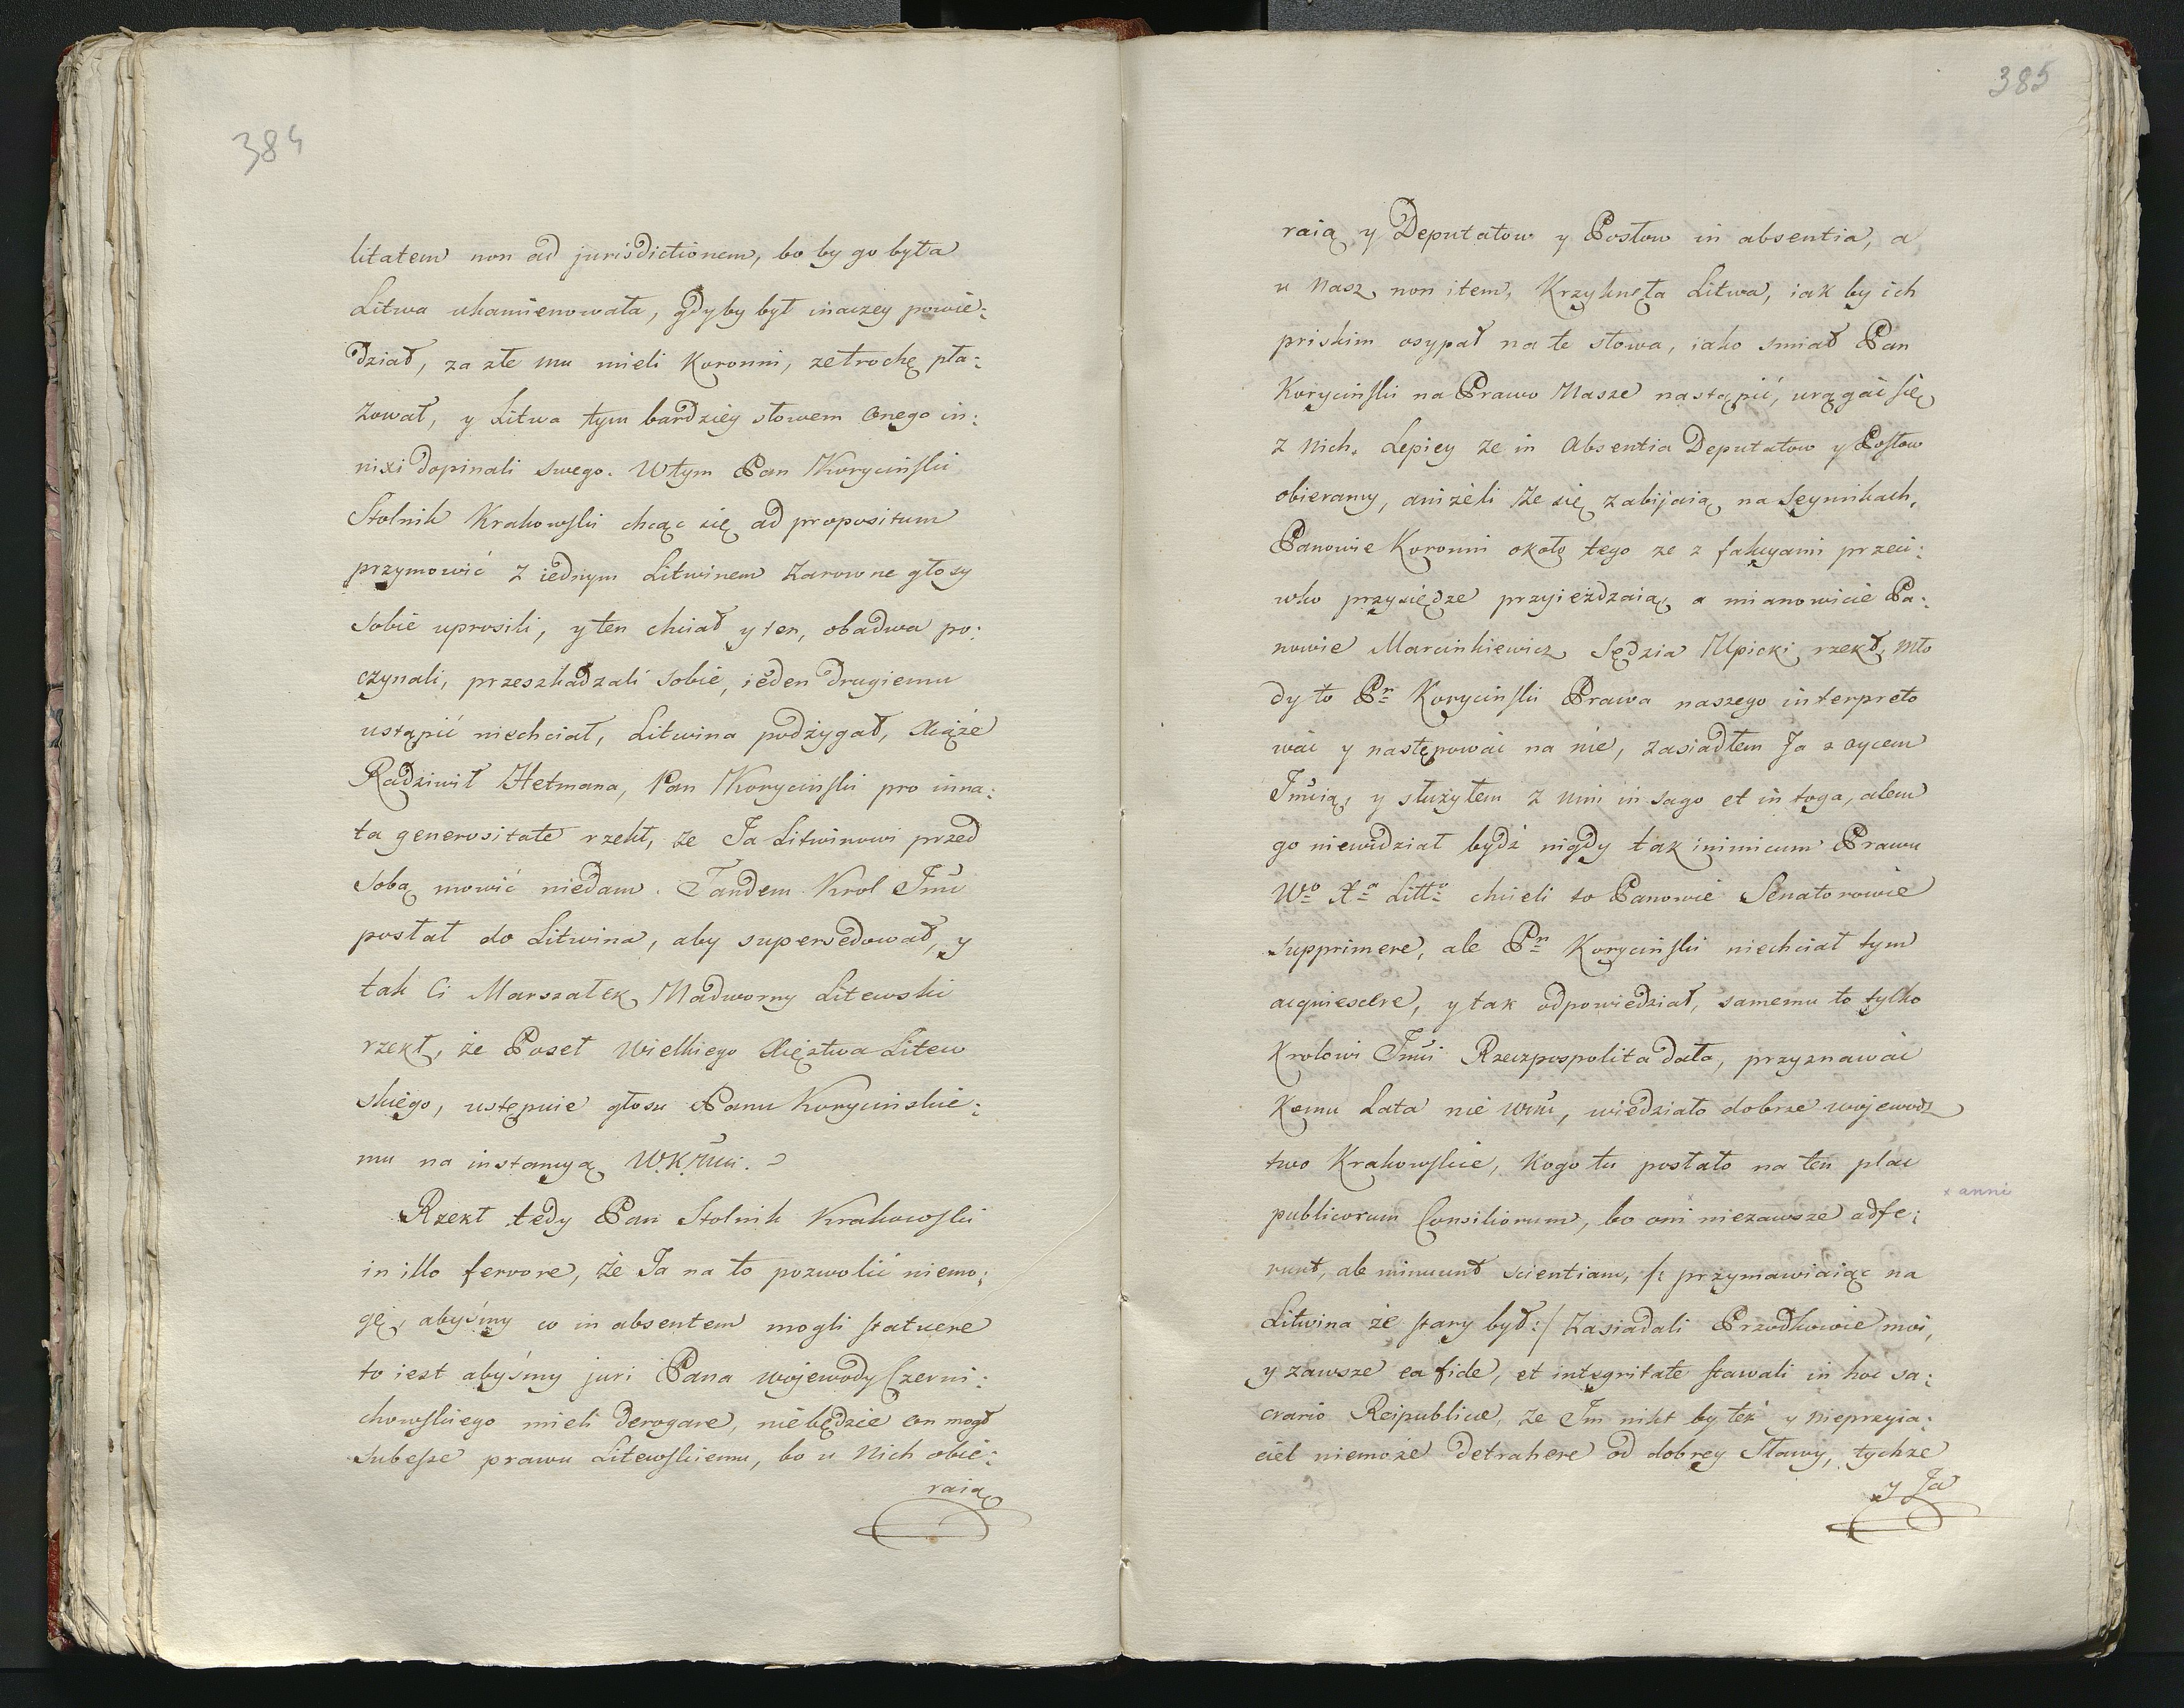 384
litatem non ad jurisdictionem, bo by go była
Litwa ukamienowała, gdyby był inaczey powie:
dział, za złe mu mieli Koronni, ze trochę pła:
zował, y Litwa tym bardziey słowem onego in:
nixi dopinali swego. W tym Pan Koryciński
Stolnik Krakowski chcąc się ad propositum
przymowić z iednym Litwinem zarowne głosy
sobie uprosili, y ten chciał y ten, obadwa po:
czynali, przeszkadzali sobie, ieden drugiemu
ustąpić niechciał, Litwina podżygał, Xiąże
Radziwił Hetmana, Pan Koryciński pro inna:
ta generositate rzekł, że Ja Litwinowi przed
sobą mowić niedam. Tandem Krol Jmć
posłał do Litwina, aby supersedował, y
tak Ci Marszałek Nadworny Litewski
rzekł, że Poseł Wielkiego Xięztwa Litew
skiego, ustępuie głosu Panu Korycinskie:
mu na instancyą W.K.Mci.
Rzekł tedy Pan Stolnik Krakowski
in illo fervore, że Ja na to pozwolić niemo:
gę, abyśmy co in absentem mogli statuere
to iest abyśmy juri Pana wojewody Czerni:
chowskiego mieli derogare, niebędzie on mogł
subesse prawu Litewskiemu, bo u Nich obie:
raią
385
raią y Deputatow y Posłow in absentia, a
u Nasz non item, Krzyknęła Litwa, iak by ich
priskim osypał na te słowa, iako smiał Pan
Koryciński na Prawo Nasze nastąpić, urągać się
z Nich. Lepiey że in Absentia Deputatow y Posłow
obieramy, aniżeli że się zabijaią na Seymikach,
Panowie Koronni około tego ze z fakcyami przeci:
wko przysiędze przyieżdzaią, a mianowicie Pa:
nowie Marcinkiewicz Sędzia Upicki rzekł, Mło
dy to Pn Koryciński Prawa naszego interpreto
wać y następować na nie, zasiadłem Ja z oycem
Jmcią, y służyłem z nim in sago et in toga, alem
go niewidział bydź nigdy tak inimicum Prawu
Wo Xa Litto chcieli to Panowie Senatorowie
supprimere, ale Pn Koryciński niechciał tym
acquiescere, y tak odpowiedział, samemu to tylko
Krolowi Jmci Rzeczpospolita dała, przyznawać
Komu Lata nie wmć, wiedziało dobrze wojewodz
two Krakowskie, Kogo tu posłało na ten plac
publicorum Consiliorum, bo oni niezawsze adfe:
x anni
runt, ale minuunt scientiam, /: przymawiaiąc na
Litwina że stary był:/ Zasiadali Przodkowie moi,
y zawsze ea fide, et integritate stawali in hoc sa:
crario Reipublicæ, że Im nikt by też y nieprzyia:
ciel niemoże detrahere od dobrey Sławy, tychze
y Ja